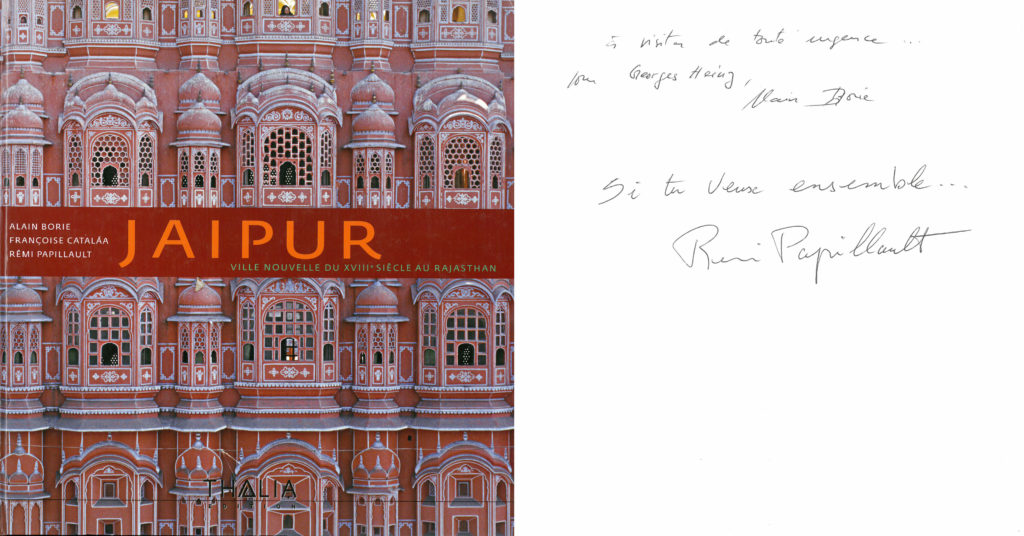 ALAIN BORIE
FRANÇOISE CATALÁA
RÉMI PAPILLAULT
JAIPUR
VILLE NOUVELLE DU XVIIIe SIÈCLE AU RAJASTHAN
THALIA
EDITION
à visiter de toute urgence ...
pour Georges Heinz,
Alain Borie
Si tu veux ensemble...
Rémi Papillault